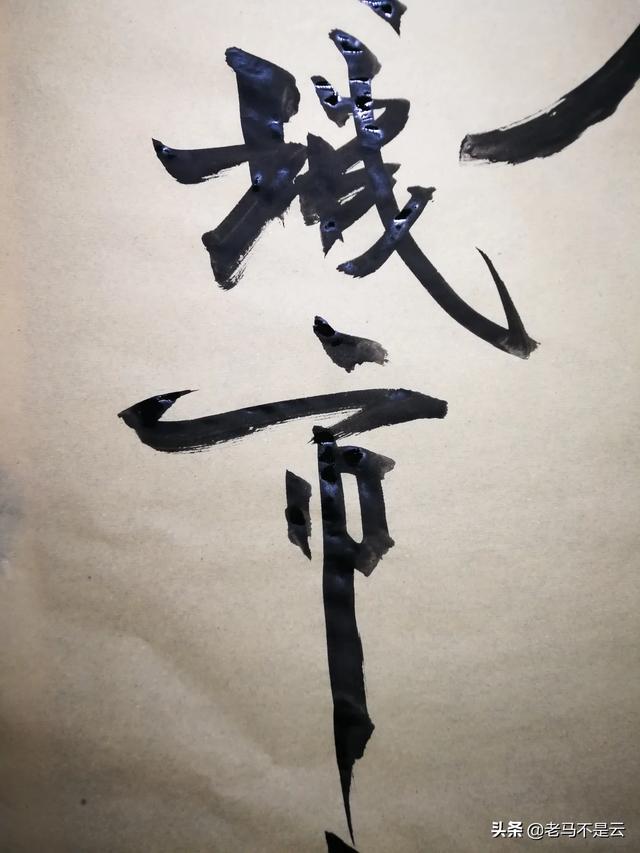 城市
头条 @老马不是云